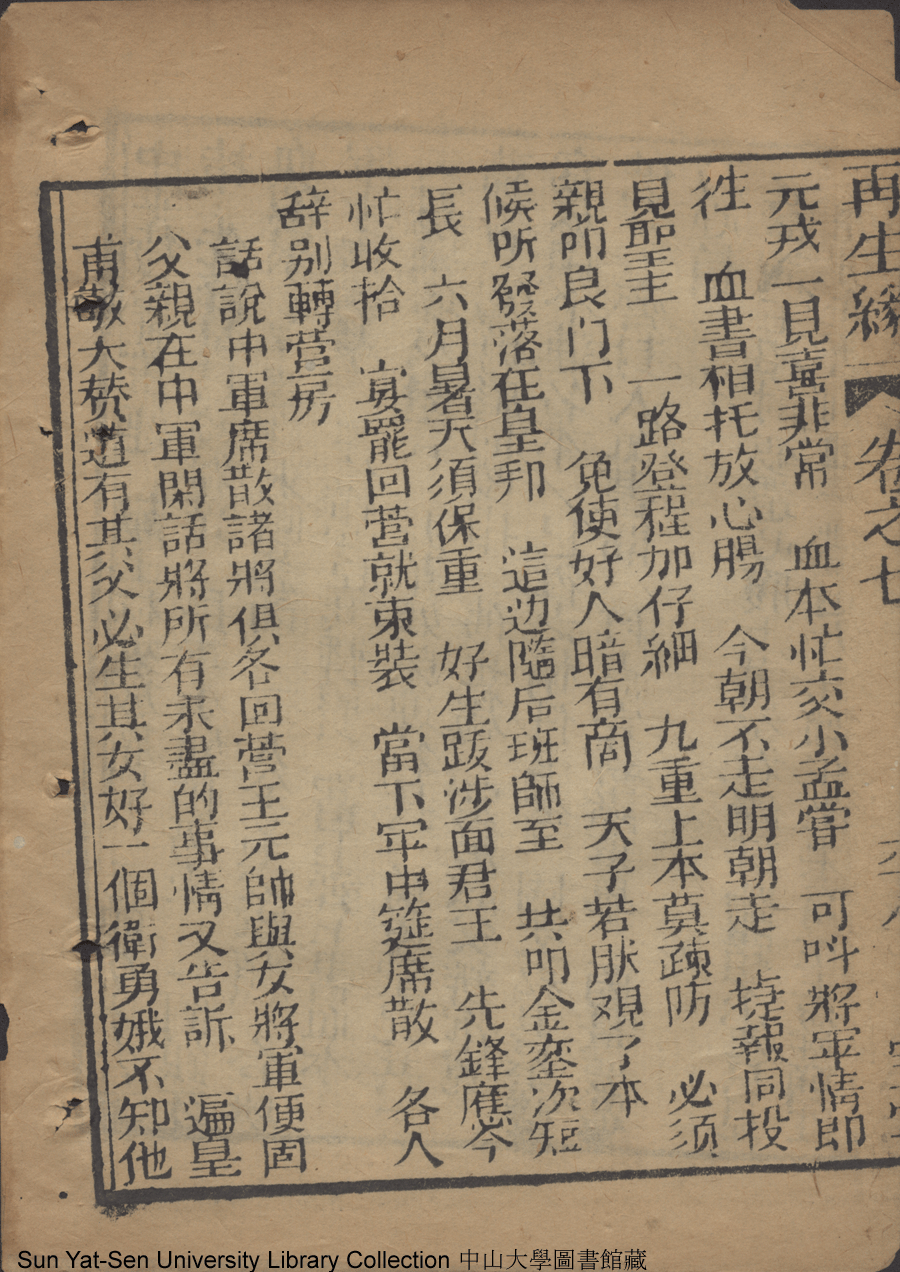 再生緣 卷之七
元戎一見喜非常 血本忙交小孟嘗 可呌將軍情即
徃 血書相托放心腸 今朝不走明朝走 捷報同投
見聖主 一路登程加仔細 九重上本莫疎防 必須
親叩良门下 免使好人暗有商 天子若肰观了本
候所發落在皇邦 這边隨后班師至 共叩金鑾次短
長 六月暑天須保重 好生跋涉面君王 先鋒應令
忙收拾 宴罷回营就束裝 當下军中筵席散 各人
辞别轉营房
話說中軍席散諸將俱各回营王元帥與女將軍便固
父親在中軍閑話將所有未盡的事情又告訴 遍皇
甫敬大赞道有其父必生其女好一個衛勇娥不知他
Sun Yat-Sen University Library Collection 中山大學圖書館藏